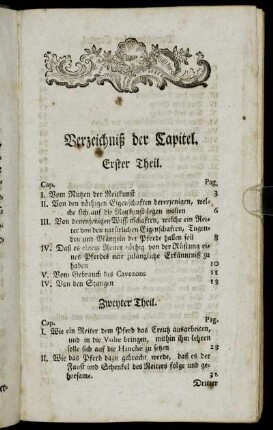 Verzeichniß der Capitel.
Erster Theil.
Cap. Pag.
I. Vom Nutzen der Reitkunst 3
II. Von den nöthigen Eigenschaften derenjenigen, wel-
che sich auf die Reitkunst legen wollen 6
III. Von denenjenigen Wissenschaften, welche ein Rei-
ter von den natürlichen Eigenschaften, Tugen-
den und Mängeln der Pferde haben soll 8
IV. Daß es einem Reiter nöthig von der Rüstung ei-
nes Pferdes eine zulängliche Erkänntniß zu
haben 10
V. Vom Gebrauch des Cavezons 11
VI. Von den Stangen 13
Zweyter Theil.
Cap. Pag.
I. Wie ein Reiter dem Pferd das Creutz ausarbeiten,
und in die Volte bringen, mithin ihm lehren
solle sich auf die Hanche zu setzen 23
II. Wie das Pferd dazu gebracht werde, daß es der
Faust und Schenkel des Reiters folge und ge-
horsame. 31
Dritter